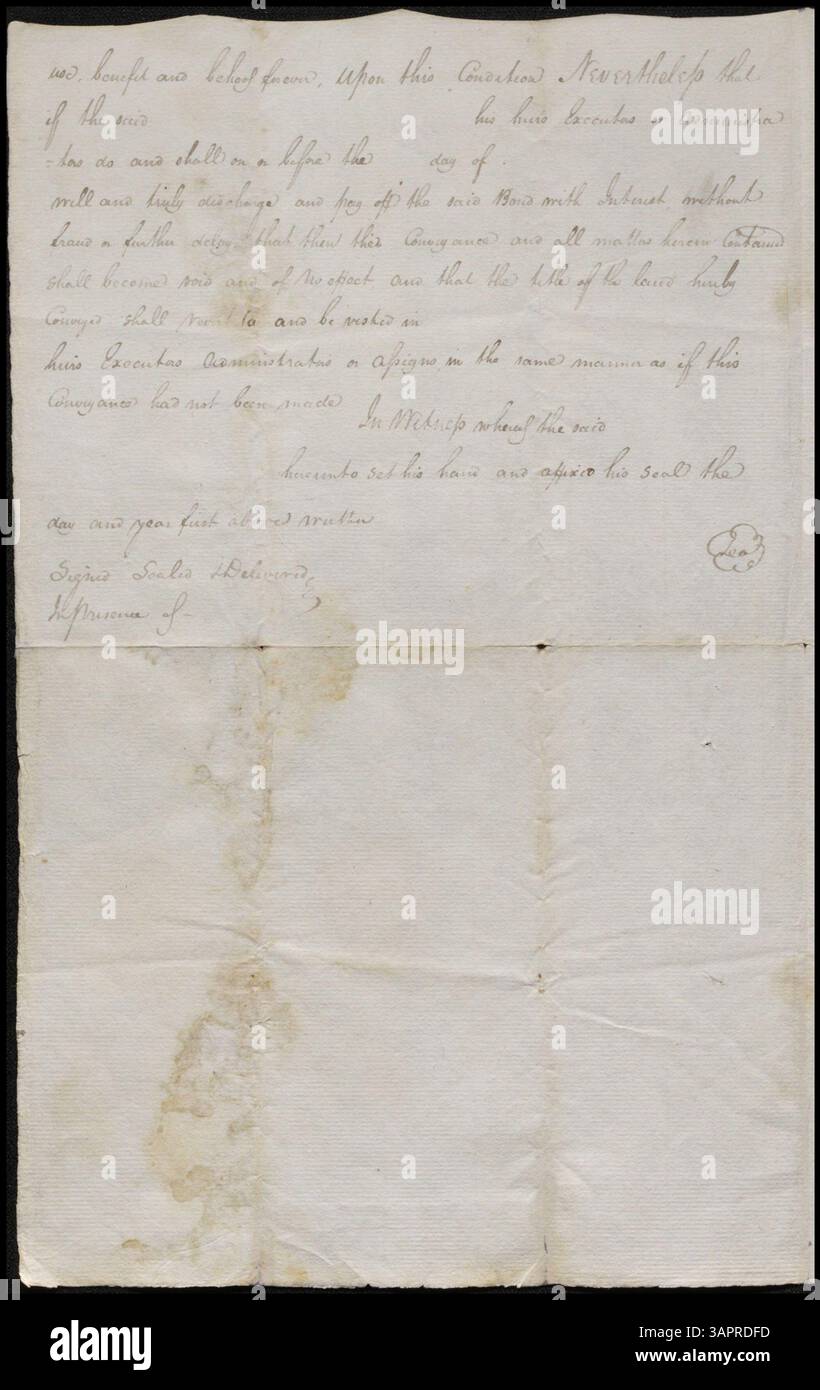 use, benefit and behoof forever, Upon this Condition Nevertheless that
if the said his heirs Executors or Administra
-tors do and shall on or before the day of
well and truly discharge and pay off the said Bond with Interest without
fraud or further delay that then this Conveyance and all matters herein Contained
shall become void and of No effect and that the title of the land hereby
Conveyed shall revert to and be vested in
heirs Executors Administrators or assigns in the same manner as if this
Conveyance had not been made
In Witness whereof the said
hereunto set his hand and affixed his Seal the
day and year first above written
Seal
Signed Sealed & Delivered
In presence of -
alamy
a
Image ID: 3APRDFD
www.alamy.com